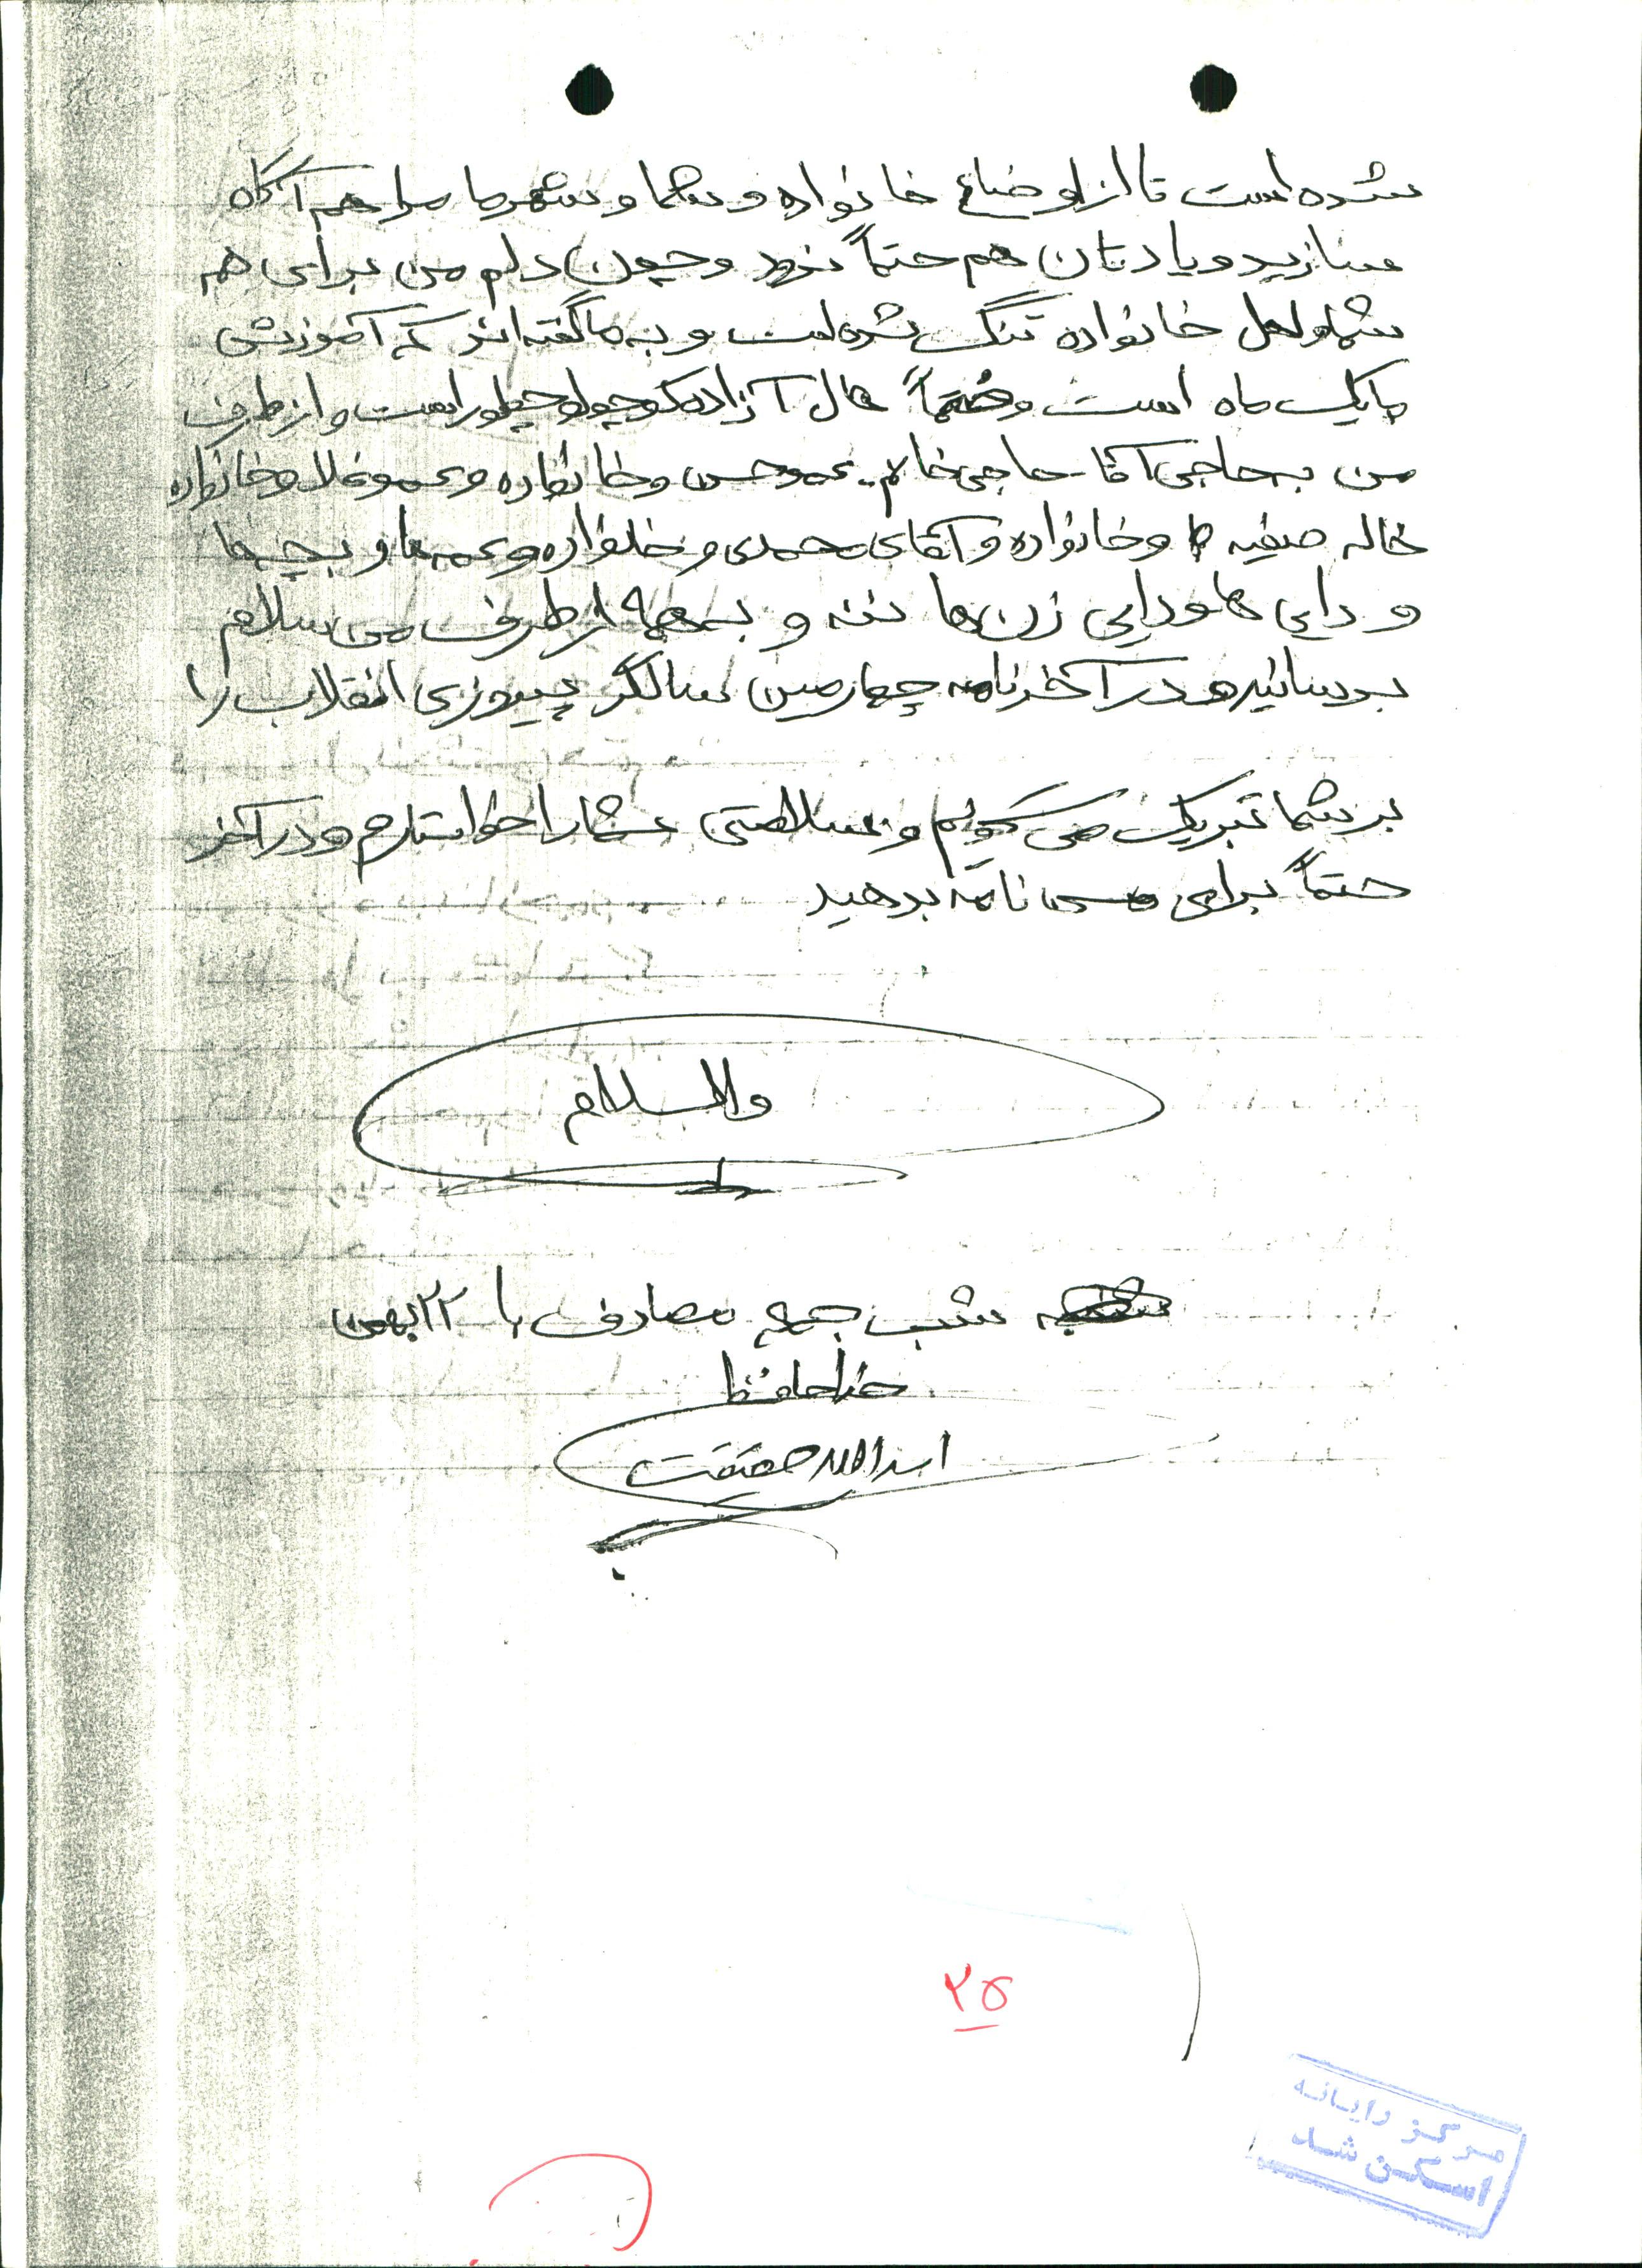 شده است تا از اوضاع خانواده و شما و شهر ما مرا هم آگاه
سازید و یادتان هم حتماً نرود و چون دلم من برای همه
شما و اهل خانواده تنگ شده است و به ما گفته‌اند که آموزش
ما یک ماه است و حتماً حال آزاده کوچولو چطور است و از طرف
من به حاجی آقا حاجی خانم عمو حسن و خانواده و عمو غلام و خانواده
خاله صفیه و خانواده و آقای محمدی و خانواده و عمه‌ها و بچه‌ها
و دایی‌ها و دایی زن‌ها ننه و به همه از طرف من سلام
برسانید و در آخر نامه چهارمین سالگرد پیروزی انقلاب را
بر شما تبریک می‌گویم و سلامتی شما را خواستارم و در آخر
حتماً برای من نامه بدهید
والسلام
شب جمعه مصادف با ۲۲ بهمن
خداحافظ
اسدالله حقیقت
۲۵
مرکز رایانه
اسکن شد